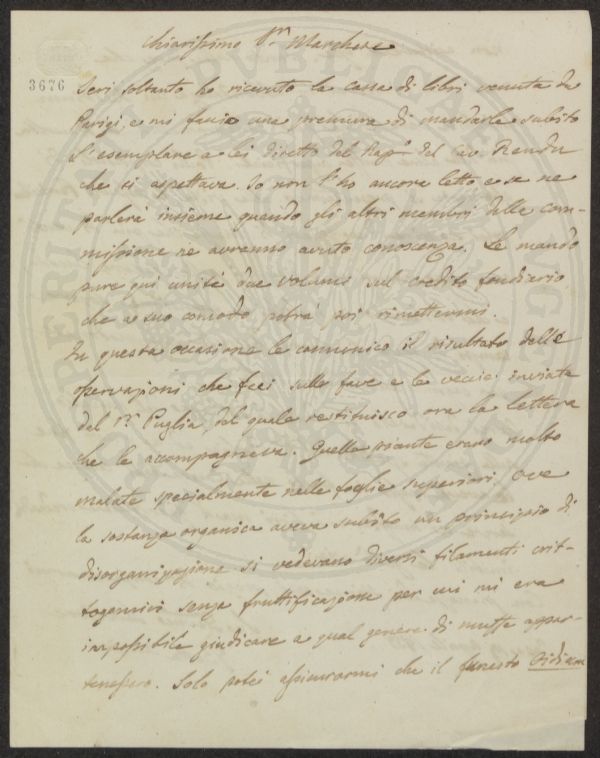 Chiarissimo Sr. Marchese
3676
Ieri soltanto ho ricevuto la cassa di libri venuta da
Parigi, e mi faccio una premura di mandarle subito
l'esemplare a lei diretto del Rapo. del cav. Rendu
che si aspettava. Io non l'ho ancora letto e se ne
parlerà insieme quando gli altri membri della com-
missione ne avranno avuto conoscenza. Le mando
pure qui uniti due volumi sul credito fondiario
che a suo comodo potrà poi rimettermi.
In questa occasione le comunico il risultato delle
osservazioni che feci sulle fave e le veccie inviate
dal Sr. Puglia, del quale restituisco ora la lettera
che le accompagnava. Quelle piante erano molto
malate specialmente nelle foglie superiori, ove
la sostanza organica aveva subito un principio di
disorganizzazione si vedevano diversi filamenti crit-
togamici senza fruttificazione per cui mi era
impossibile giudicare a qual genere di muffe appar-
tenessero. Solo potei assicurarmi che il funesto Oidium